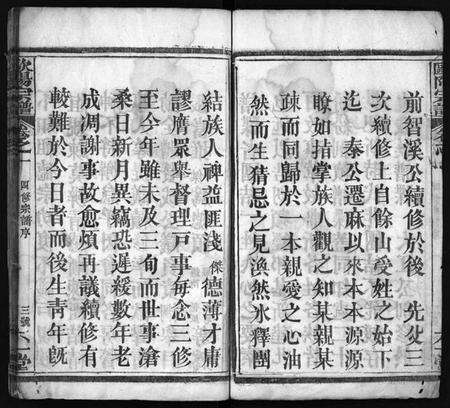 前智溪公續修於後　先父三
次續修上自餘山受姓之始下
迄　泰公遷麻以來本本源源
瞭如指掌族人觀之知某親某
疎而同歸於一本親愛之心油
然而生猜忌之見渙然冰釋團
結族人裨益匪淺傑德薄才庸
謬膺眾舉督理戸事每念三修
至今年雖未及三旬而世事滄
桑日新月異竊恐遲緩數年老
成凋謝事故愈煩再議續修有
較難於今日者而後生靑年旣
歐陽宗譜
卷之一
四修宗譜序
三號
六
堂